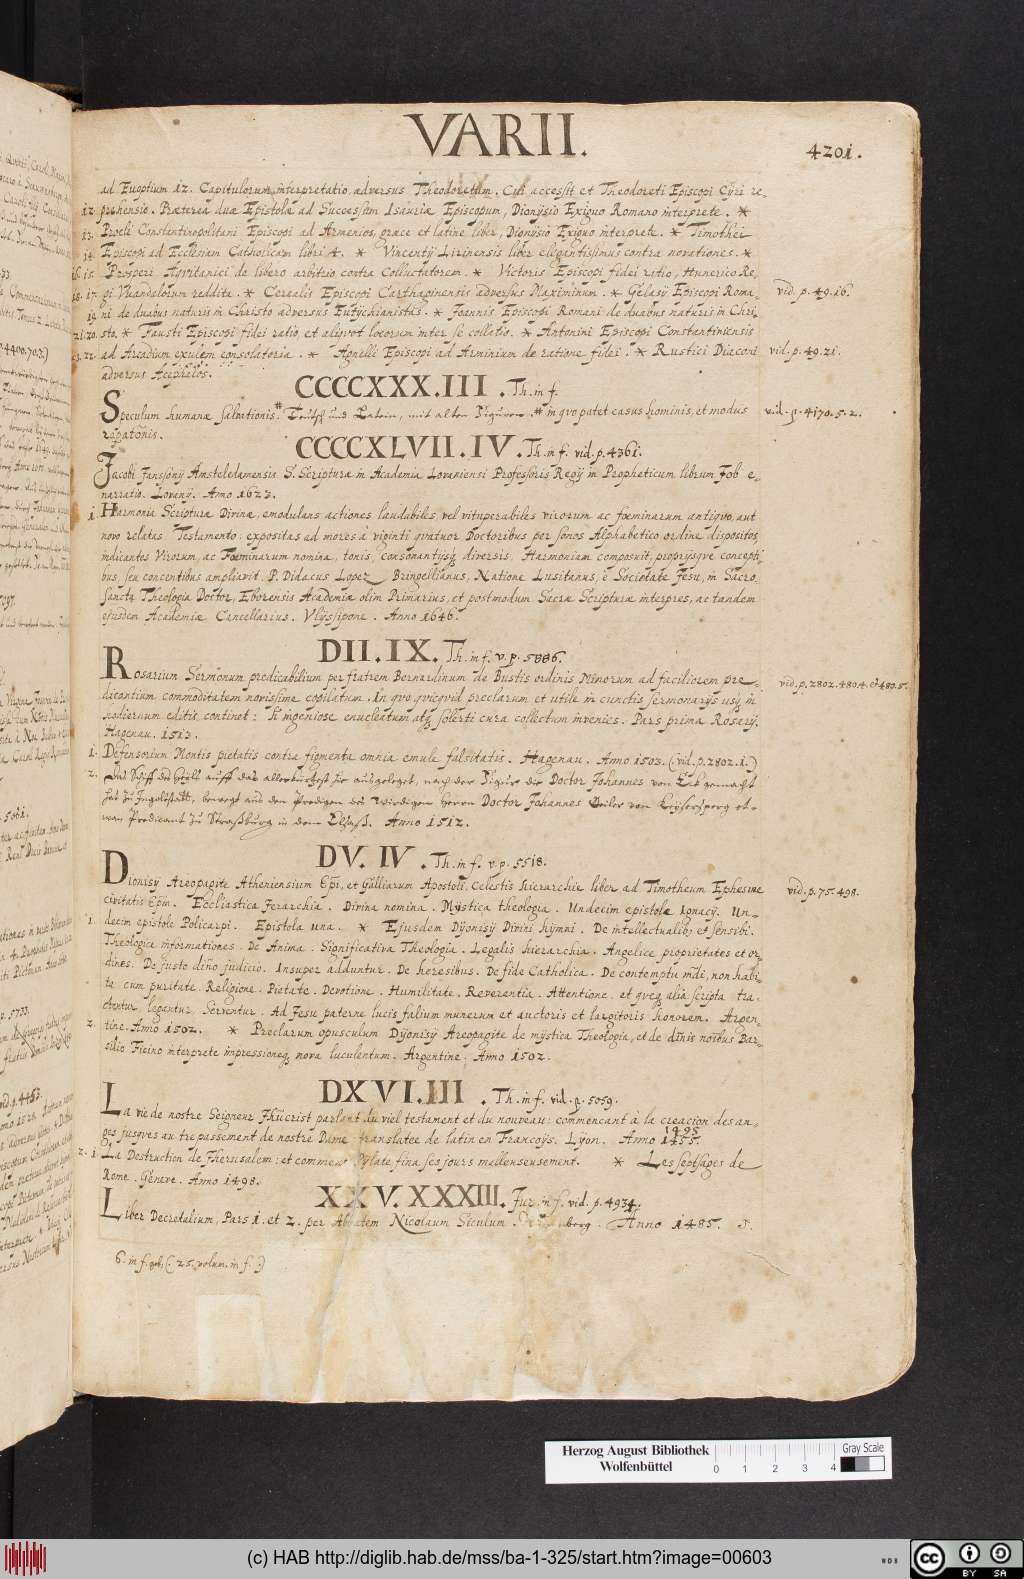 VARII.
4201.
ad Eugptium 12. Capitulorum interpretatio adversus Theodoretum. Cui accessit et Theodoreti Episcopi Cÿri re
12. prehensio. Præterea duæ Epistolæ ad Successum Isauriæ Episcopum, Dionysio Exiguo Romano interprete. *
13. Procli Constantinopolitani Episcopi ad Armenios, græce et latine liber, Dionÿsio Exiguo interprete. * Timothei
14. Episcopi ad Ecclesiam Catholicam libri 4. * Vincentÿ Lirinensis liber elegantissimus contra novationes. *
15. Prosperi Aqvitanici de libero arbitrio contra Colluctatorem. * Victoris Episcopi fidei ratio, Hunerico Re,
17. gi Vuandalorum reddita. * Cerealis Episcopi Carthaginensis adversus Maximinum. * Gelasÿ Episcopi Roma, vid. p. 49. 16.
19. ni de duabus naturis in Christo adversus Eutÿchianistas. * Joannis Episcopi Romani de duabus naturis in Chri,
21. 20. sto. * Fausti Episcopi fidei ratio et aliqvot locorum inter se collatio. * Antonini Episcopi Constantinensis
22. ad Arcadium exulem consolatoria. * Agnelli Episcopi ad Arminium de ratione fidei. * Rustici Diaconi vid. p. 49. 21.
adversus Acephalos.
CCCCXXX.III. Th. in f.
Speculum humanæ salvationis. Teütsch und Latein, mit alten Figuren. # in qvo patet casus hominis, et modus vid. p. 4170. 5. 2.
rapationis.
CCCCXLVII.IV. Th. in f. vid. p. 4361.
Jacobi Jansonÿ Amsteledamensis S. Scripturæ in Academia Lovaniensi Professoris Regÿ in Propheticum librum Job e,
narratio. Lovanÿ. Anno 1623.
1. Harmonia Scripturæ Divinæ, emodulans actiones laudabiles, vel vituperabiles virorum ac foeminarum antiqvo, aut
novo relatas Testamento: expositas ad mores à viginti qvatuor Doctoribus per sonos Alphabetico ordine dispositos,
indicantes Virorum, ac Foeminarum nomina, tonis, consonantÿsq, diversis. Harmoniam composuit, proprÿsqve concepti
bus, seu concentibus ampliavit. P. Didacus Lopez Bringellianus, Natione Lusitanus, è Societate Jesu, in Sacro,
sancta Theologia Doctor, Eborensis Academiæ olim Primarius, et postmodum Sacræ Scripturæ interpres, ac tandem
ejusdem Academiæ Cancellarius. Vlÿssipone. Anno 1646.
DII.IX. Th. in f. v. p. 5886.
Rosarium Sermonum predicabilium per fratrem Bernardinum de Bustis ordinis Minorum ad faciliorem pre, vid. p. 2802. 480.4. et 480.5.
dicantium commoditatem novissime copilatum. In qvo qvicqvid preclarum et utile in cunctis sermonarÿs usq, in
hodiernum editis continet: Hi ingeniose enucleatum atq, solerti cura collectum invenies. Pars prima Rosarÿ.
Hagenau. 1513.
1. Defensorium Montis pietatis contra figmenta omnia emule falsitatis. Hagenau. Anno 1503. (vid. p. 2802. 1.)
2. Das Schiff des Heÿls auff das allerkürtzest hie ausgeleget, nach der Figur die Doctor Johannes von Eck gemacht
hat zu Ingolstadt, bewegt aus den Predigen des Wirdigen Herrn Doctor Johannes Geiler von Keÿsersperg et,
wan Predicant zu Straßburg in dem Elsaß. Anno 1512.
DV. IV. Th. in f. v. p. 5518.
Dionisÿ Areopagite Atheniensium Epi, et Galliarum Apostoli Celestis hierarchie liber ad Timotheum Ephesine vid. p. 75. 498.
civitatis Epm. Eccliastica Jerarchia. Divina nomina. Mystica theologia. Undecim epistolæ Ignacÿ. Un,
1. decim epistole Policarpi. Epistola una. * Ejusdem Dÿonisÿ Divini hymni. De intellectualib, et sensibi.
Theologice informationes. De Anima. Significativa Theologia. Legalis hierarchia. Angelice proprietates et or
dines. De justo diño judicio. Insuper adduntur. De heresibus. De fide Catholica. De contemptu mdi, non habi
te cum puritate. Religione. Pietate. Devotione. Humilitate. Reverentia. Attentione. et qveq, alia scripta tra,
ctentur legantur. Serventur. Ad Jesu paterne lucis filium munerum et auctoris et largitoris honorem. Argen,
2. tine. Anno 1502. * Preclarum opusculum Dÿonisÿ Areopagite de mÿstica Theologia, et de dinis noibus Bar,
silio Ficino interprete impressioneq, nova luculentum. Argentine. Anno 1502.
DXVI.III. Th. in f. vid. p. 5059.
La vie de nostre Seigneur Jhucrist parlant du viel testament et du nouveau: commencant à la creacion des an,
ges jusqves au trepassement de nostre Dame translatee de latin en Francoÿs. Lÿon. Anno 1455. 1495
2. 1. La Destruction de Jherusalem: et comment Pylate fina ses jours mallenseusement. * Les sept sages de
Rome. Geneve. Anno 1498.
XXV. XXXIII. Jur. in f. vid. p. 4934.
Liber Decretalium, Pars 1. et 2. per Abbatem Nicolaum Siculum. Anno 1485. 5.
6. in f. geb. (: 25. volum. in f. :)
Herzog August Bibliothek
Wolfenbüttel
0 1 2 3 4
Gray Scale
(c) HAB http://diglib.hab.de/mss/ba-1-325/start.htm?image=00603
WDB
CC BY SA